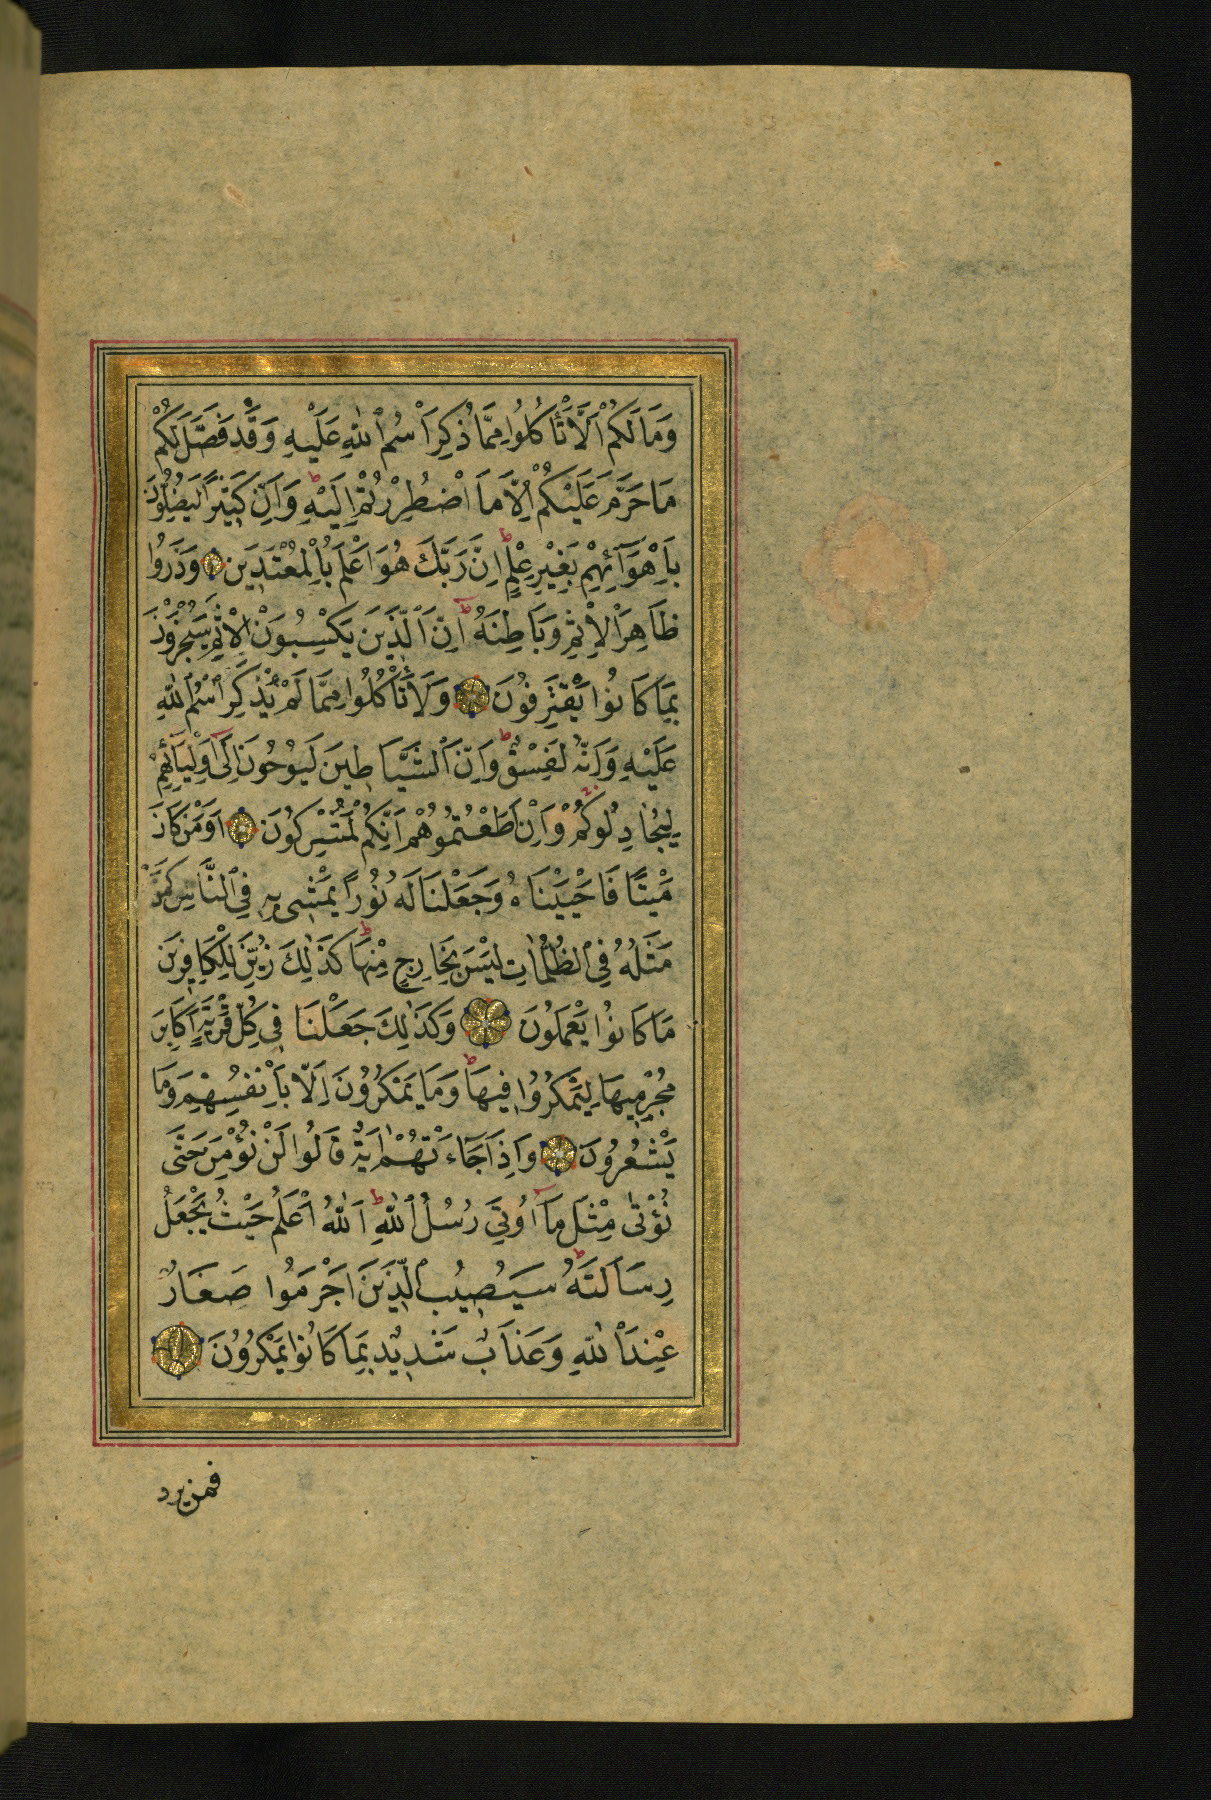 وَمَا لَكُمْ اَلَّا تَأْكُلُوا مِمَّا ذُكِرَ اسْمُ اللّٰهِ عَلَيْهِ وَقَدْ فَصَّلَ لَكُمْ
مَا حَرَّمَ عَلَيْكُمْ اِلَّا مَا اضْطُرِرْتُمْ اِلَيْهِ ط وَاِنَّ كَثِيرًا لَيُضِلُّونَ
بِاَهْوَآئِهِمْ بِغَيْرِ عِلْمٍ ط اِنَّ رَبَّكَ هُوَ اَعْلَمُ بِالْمُعْتَدِينَ وَذَرُوا
ظَاهِرَ الْاِثْمِ وَبَاطِنَهُ ط اِنَّ الَّذِينَ يَكْسِبُونَ الْاِثْمَ سَيُجْزَوْنَ
بِمَا كَانُوا يَقْتَرِفُونَ وَلَا تَأْكُلُوا مِمَّا لَمْ يُذْكَرِ اسْمُ اللّٰهِ
عَلَيْهِ وَاِنَّهُ لَفِسْقٌ ط وَاِنَّ الشَّيَاطِينَ لَيُوحُونَ اِلٰٓى اَوْلِيَآئِهِمْ
لِيُجَادِلُوكُمْ وَاِنْ اَطَعْتُمُوهُمْ اِنَّكُمْ لَمُشْرِكُونَ اَوَمَنْ كَانَ
مَيْتًا فَاَحْيَيْنَاهُ وَجَعَلْنَا لَهُ نُورًا يَمْشِي بِهِ فِي النَّاسِ كَمَنْ
مَثَلُهُ فِي الظُّلُمَاتِ لَيْسَ بِخَارِجٍ مِنْهَا ط كَذٰلِكَ زُيِّنَ لِلْكَافِرِينَ
مَا كَانُوا يَعْمَلُونَ وَكَذٰلِكَ جَعَلْنَا فِي كُلِّ قَرْيَةٍ اَكَابِرَ
مُجْرِمِيهَا لِيَمْكُرُوا فِيهَا ط وَمَا يَمْكُرُونَ اِلَّا بِاَنْفُسِهِمْ وَمَا
يَشْعُرُونَ وَاِذَا جَآءَتْهُمْ اٰيَةٌ قَالُوا لَنْ نُؤْمِنَ حَتّٰى
نُؤْتٰى مِثْلَ مَآ اُوتِيَ رُسُلُ اللّٰهِ ط اَللّٰهُ اَعْلَمُ حَيْثُ يَجْعَلُ
رِسَالَتَهُ ط سَيُصِيبُ الَّذِينَ اَجْرَمُوا صَغَارٌ
عِنْدَ اللّٰهِ وَعَذَابٌ شَدِيدٌ بِمَا كَانُوا يَمْكُرُونَ
فمن يرد